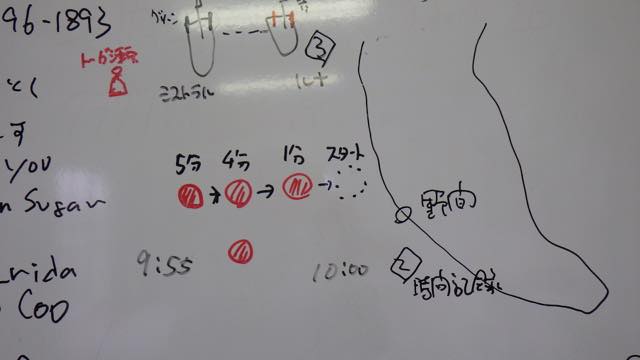 96-1893
グリーン
3
トガ沢
とく
ミストラル
ルナ
す
you
5分 4分 1分 スタート
n Sugar
野間
9:55 10:00
2
時間記録
rida
COO